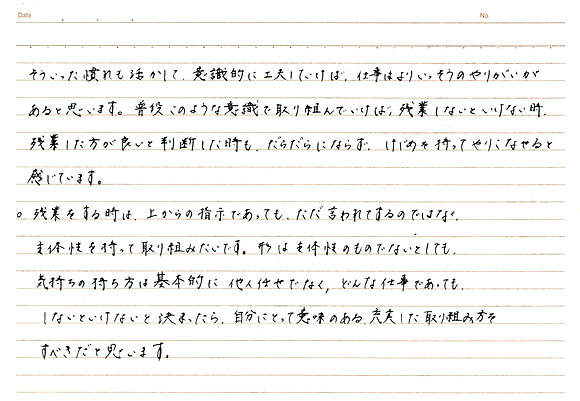 Date No.
そういった慣れも活かして、意識的に工夫していけば、仕事はよりいっそうのやりがいが
あると思います。普段このような意識で取り組んでいけば、残業しないといけない時、
残業した方が良いと判断した時も、だらだらにならず、けじめを持ってやりこなせると
感じています。
○ 残業をする時は、上からの指示であっても、ただ言われてするのではなく、
主体性を持って取り組みたいです。形は主体性のものでないとしても、
気持ちの持ち方は基本的に他人任せでなく、どんな仕事であっても、
しないといけないと決まったら、自分にとって意味のある、充実した取り組み方を
すべきだと思います。